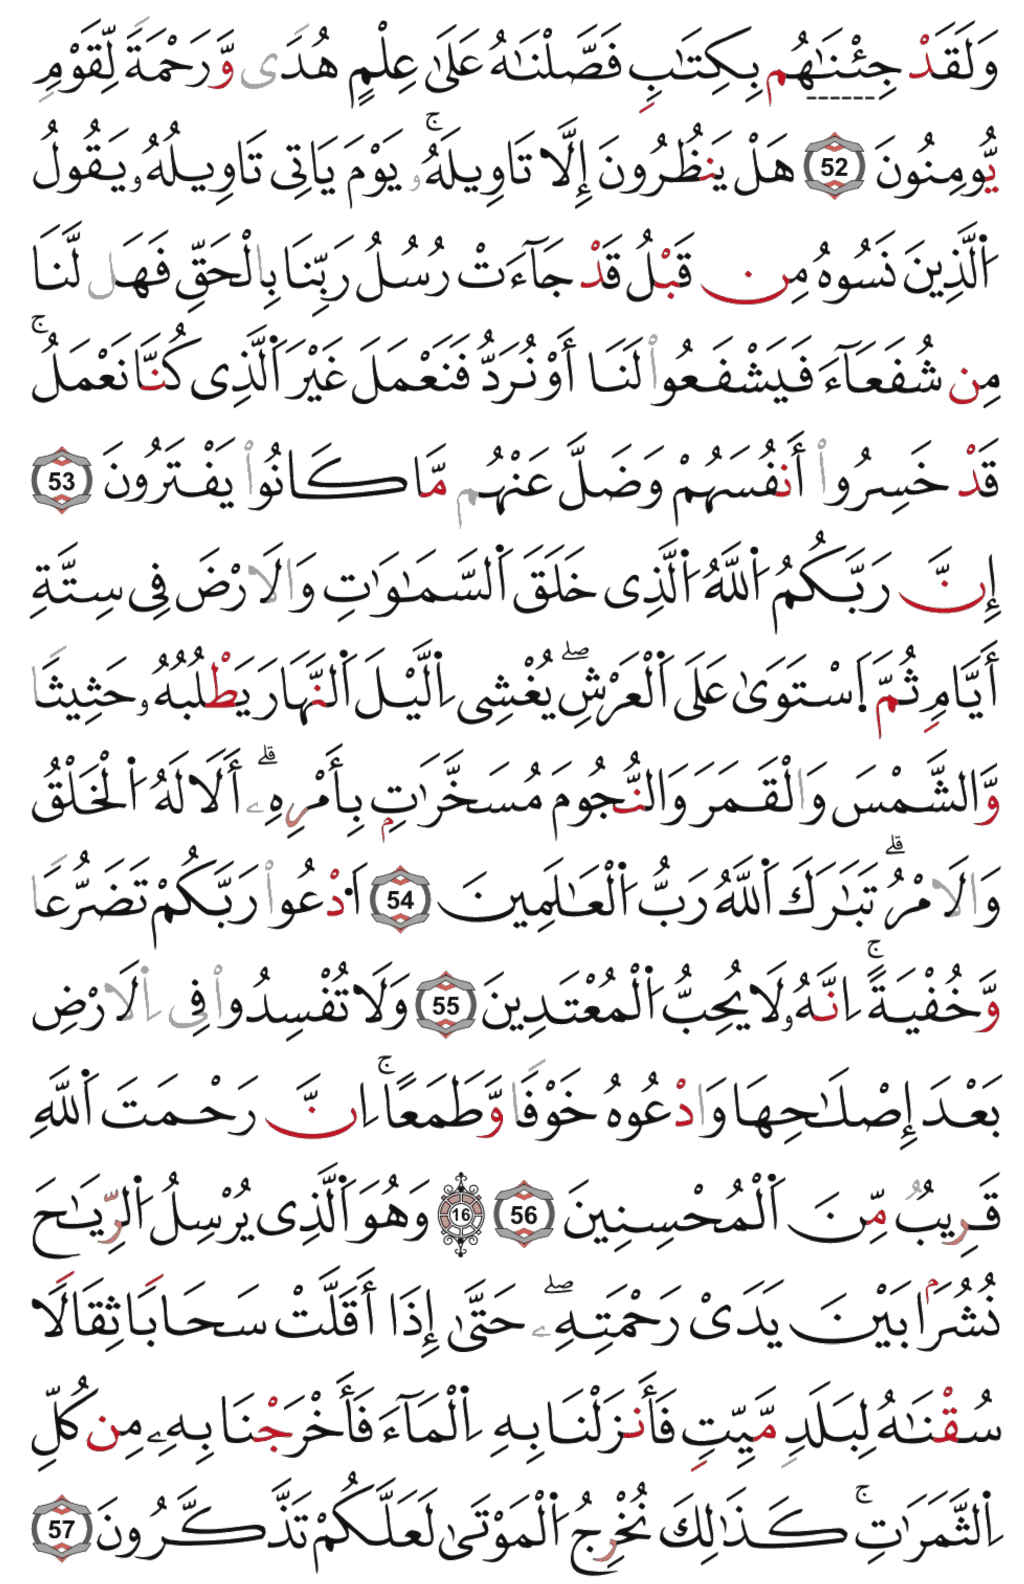 وَلَقَدْ جِئْنَٰهُم بِكِتَٰبٖ فَصَّلْنَٰهُ عَلَىٰ عِلْمٍ هُدٗى وَّرَحْمَةٗ لِّقَوْمٖ
يُّومِنُونَ 52 هَلْ يَنظُرُونَ إِلَّا تَاوِيلَهُۥۚ يَوْمَ يَاتِى تَاوِيلُهُۥ يَقُولُ
اَ۬لَّذِينَ نَسُوهُ مِن قَبْلُ قَدْ جَآءَتْ رُسُلُ رَبِّنَا بِالْحَقِّ فَهَل لَّنَا
مِن شُفَعَآءَ فَيَشْفَعُواْ لَنَا أَوْ نُرَدُّ فَنَعْمَلَ غَيْرَ اَ۬لَّذِى كُنَّا نَعْمَلُۚ
قَدْ خَسِرُواْ أَنفُسَهُمْ وَضَلَّ عَنْهُم مَّا كَانُواْ يَفْتَرُونَ 53
إِنَّ رَبَّكُمُ اُ۬للَّهُ اُ۬لَّذِى خَلَقَ اَ۬لسَّمَٰوَٰتِ وَالَارْضَ فِى سِتَّةِ
أَيَّامٖ ثُمَّ اَ۪سْتَوَىٰ عَلَى اَ۬لْعَرْشِۖ يُغْشِى اِ۬لَّيْلَ اَ۬لنَّهَارَ يَطْلُبُهُۥ حَثِيثٗا
وَّالشَّمْسَ وَالْقَمَرَ وَالنُّجُومَ مُسَخَّرَٰتِۭ بِأَمْرِهِۦۗ أَلَا لَهُ اُ۬لْخَلْقُ
وَالَامْرُۗ تَبَٰرَكَ اَ۬للَّهُ رَبُّ اُ۬لْعَٰلَمِينَ 54 اَ۟دْعُواْ رَبَّكُمْ تَضَرُّعٗا
وَّخُفْيَةًۚ اِنَّهُۥ لَا يُحِبُّ اُ۬لْمُعْتَدِينَ 55 وَلَا تُفْسِدُواْ فِى اِ۬لَارْضِ
بَعْدَ إِصْلَٰحِهَا وَادْعُوهُ خَوْفٗا وَّطَمَعًاۚ اِنَّ رَحْمَتَ اَ۬للَّهِ
قَرِيبٞ مِّنَ اَ۬لْمُحْسِنِينَ 56 16 وَهُوَ اَ۬لَّذِى يُرْسِلُ اُ۬لرِّيَٰحَ
نُشُرَۢا بَيْنَ يَدَىْ رَحْمَتِهِۦۖ حَتَّىٰ إِذَا أَقَلَّتْ سَحَابٗا ثِقَالٗا
سُقْنَٰهُ لِبَلَدٖ مَّيِّتٖ فَأَنزَلْنَا بِهِ اِ۬لْمَآءَ فَأَخْرَجْنَا بِهِۦ مِن كُلِّ
اِ۬لثَّمَرَٰتِۚ كَذَٰلِكَ نُخْرِجُ اُ۬لْمَوْتَىٰ لَعَلَّكُمْ تَذَّكَّرُونَ 57